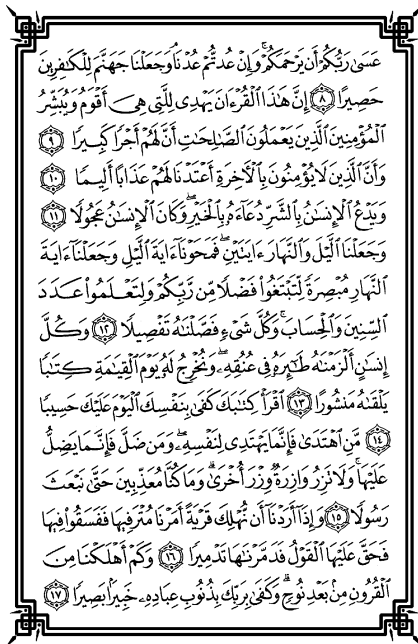 عَسَىٰ رَبُّكُمْ أَن يَرْحَمَكُمْ ۚ وَإِنْ عُدتُّمْ عُدْنَا ۘ وَجَعَلْنَا جَهَنَّمَ لِلْكَافِرِينَ
حَصِيرًا ٨ إِنَّ هَٰذَا الْقُرْءَانَ يَهْدِي لِلَّتِي هِيَ أَقْوَمُ وَيُبَشِّرُ
الْمُؤْمِنِينَ الَّذِينَ يَعْمَلُونَ الصَّالِحَاتِ أَنَّ لَهُمْ أَجْرًا كَبِيرًا ٩
وَأَنَّ الَّذِينَ لَا يُؤْمِنُونَ بِالْأَخِرَةِ أَعْتَدْنَا لَهُمْ عَذَابًا أَلِيمًا ١٠
وَيَدْعُ الْإِنسَٰنُ بِالشَّرِّ دُعَآءَهُۥ بِالْخَيْرِ ۖ وَكَانَ الْإِنسَٰنُ عَجُولًا ١١
وَجَعَلْنَا الَّيْلَ وَالنَّهَارَ ءَايَتَيْنِ ۖ فَمَحَوْنَآ ءَايَةَ الَّيْلِ وَجَعَلْنَآ ءَايَةَ
النَّهَارِ مُبْصِرَةً لِّتَبْتَغُوا۟ فَضْلًا مِّن رَّبِّكُمْ وَلِتَعْلَمُوا۟ عَدَدَ
السِّنِينَ وَالْحِسَابَ ۚ وَكُلَّ شَىْءٍ فَصَّلْنَٰهُ تَفْصِيلًا ١٢ وَكُلَّ
إِنسَٰنٍ أَلْزَمْنَٰهُ طَٰٓئِرَهُۥ فِي عُنُقِهِۦ ۖ وَنُخْرِجُ لَهُۥ يَوْمَ الْقِيَٰمَةِ كِتَٰبًا
يَلْقَىٰهُ مَنشُورًا ١٣ اقْرَأْ كِتَٰبَكَ كَفَىٰ بِنَفْسِكَ الْيَوْمَ عَلَيْكَ حَسِيبًا
١٤ مَّنِ اهْتَدَىٰ فَإِنَّمَا يَهْتَدِي لِنَفْسِهِۦ ۖ وَمَن ضَلَّ فَإِنَّمَا يَضِلُّ
عَلَيْهَا ۚ وَلَا تَزِرُ وَازِرَةٌ وِزْرَ أُخْرَىٰ ۗ وَمَا كُنَّا مُعَذِّبِينَ حَتَّىٰ نَبْعَثَ
رَسُولًا ١٥ وَإِذَآ أَرَدْنَآ أَن نُّهْلِكَ قَرْيَةً أَمَرْنَا مُتْرَفِيهَا فَفَسَقُوا۟ فِيهَا
فَحَقَّ عَلَيْهَا الْقَوْلُ فَدَمَّرْنَٰهَا تَدْمِيرًا ١٦ وَكَمْ أَهْلَكْنَا مِنَ
الْقُرُونِ مِنۢ بَعْدِ نُوحٍ ۗ وَكَفَىٰ بِرَبِّكَ بِذُنُوبِ عِبَادِهِۦ خَبِيرًۢا بَصِيرًا ١٧